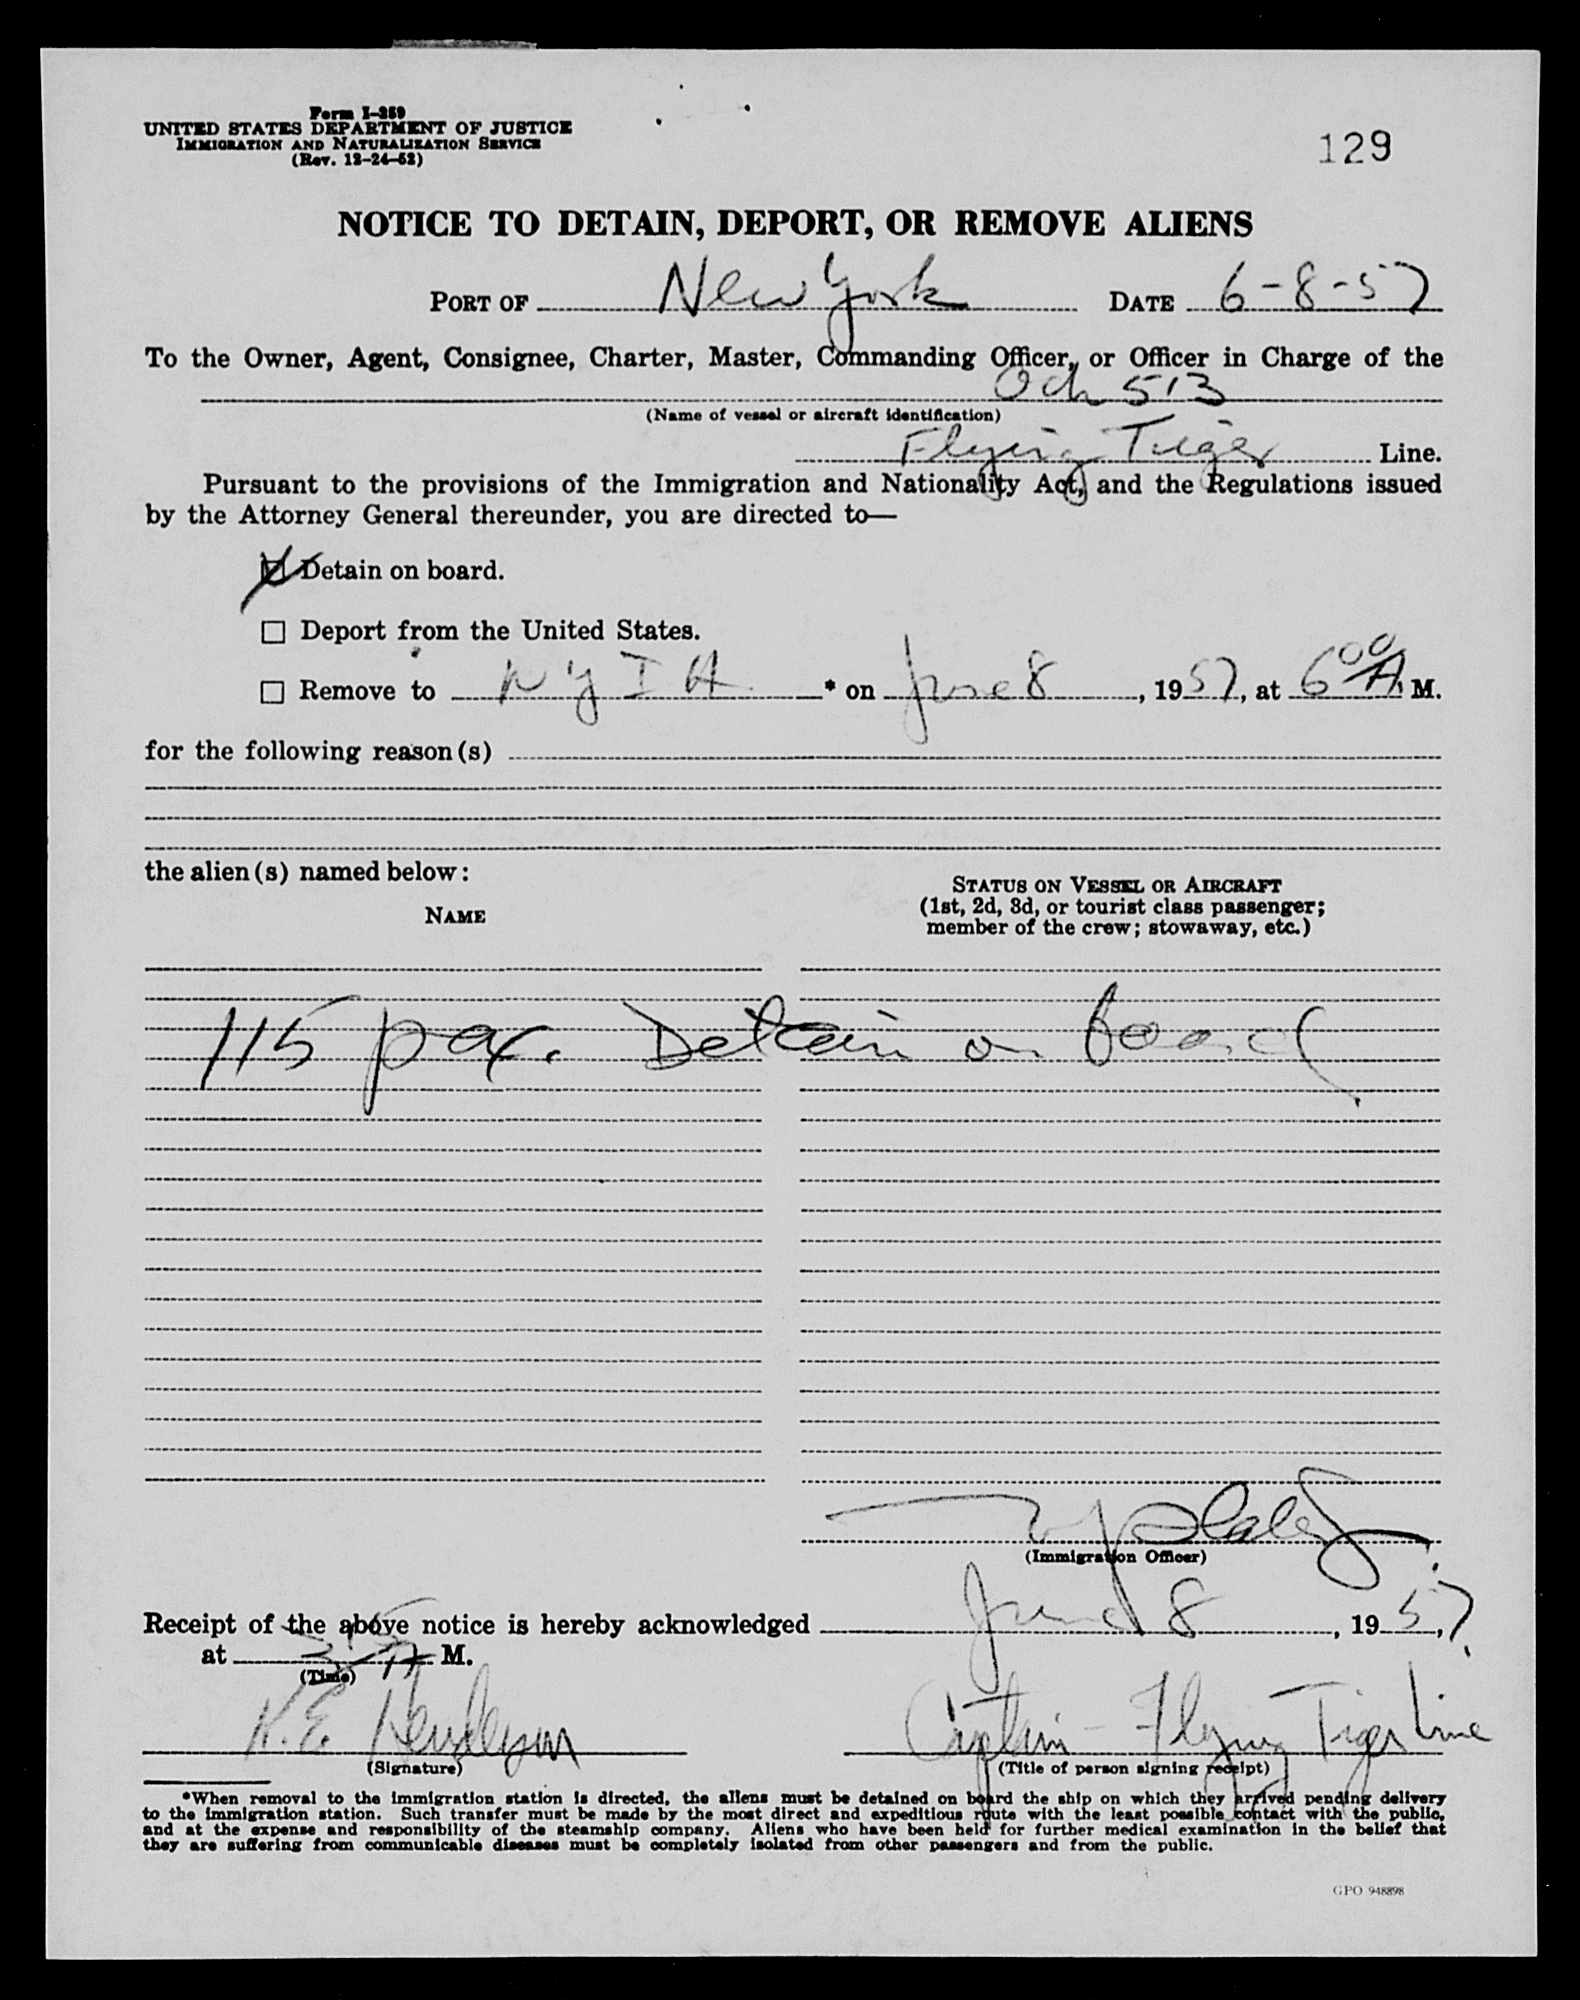 Form I-259
UNITED STATES DEPARTMENT OF JUSTICE
IMMIGRATION AND NATURALIZATION SERVICE
(Rev. 12-24-52)
129
NOTICE TO DETAIN, DEPORT, OR REMOVE ALIENS
PORT OF New York DATE 6-8-57
To the Owner, Agent, Consignee, Charter, Master, Commanding Officer, or Officer in Charge of the
513
(Name of vessel or aircraft identification)
Flying Tiger Line.
Pursuant to the provisions of the Immigration and Nationality Act, and the Regulations issued
by the Attorney General thereunder, you are directed to—
Detain on board.
☐ Deport from the United States.
☐ Remove to N Y I A * on June 8, 1957, at 6 00 A M.
for the following reason(s)
the alien(s) named below:
NAME
STATUS ON VESSEL OR AIRCRAFT
(1st, 2d, 3d, or tourist class passenger;
member of the crew; stowaway, etc.)
115 pax. Detain on board
(Immigration Officer)
Receipt of the above notice is hereby acknowledged June 8, 1957,
at M.
(Time)
K.E. Henderson Captain - Flying Tiger Line
(Signature) (Title of person signing receipt)
*When removal to the immigration station is directed, the aliens must be detained on board the ship on which they arrived pending delivery
to the immigration station. Such transfer must be made by the most direct and expeditious route with the least possible contact with the public,
and at the expense and responsibility of the steamship company. Aliens who have been held for further medical examination in the belief that
they are suffering from communicable diseases must be completely isolated from other passengers and from the public.
GPO 948898